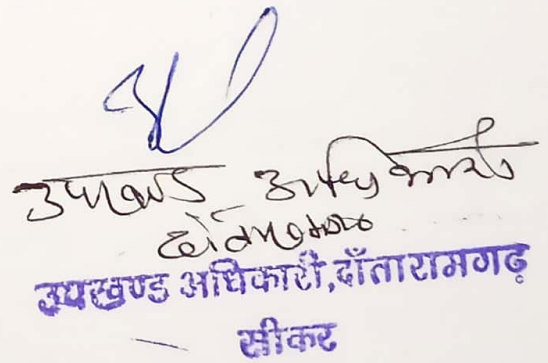 उपखण्ड अधिकारी
दाँतारामगढ
उपखण्ड अधिकारी,दाँतारामगढ़
सीकर